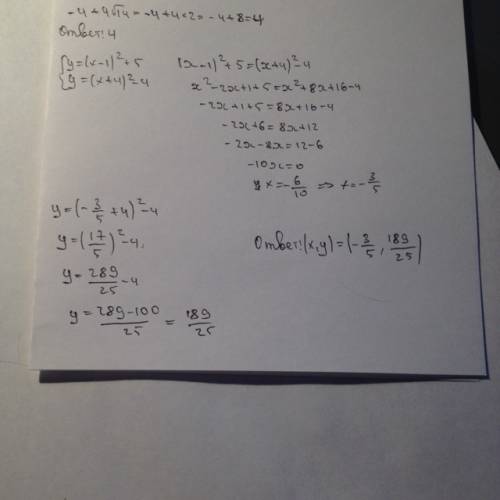 -4+4√14=-4+4×2=-4+8=4
Ответ: 4
{y=(x-1)²+5
{y=(x+4)²-4
(x-1)²+5=(x+4)²-4
x²-2x+1+5=x²+8x+16-4
-2x+1+5=8x+16-4
-2x+6=8x+12
-2x-8x=12-6
-10x=6
x=-6/10 => x=-3/5
y=(-3/5+4)²-4
y=(17/5)²-4
y=289/25-4
y=289-100/25=189/25
Ответ: (x,y)=(-3/5, 189/25)